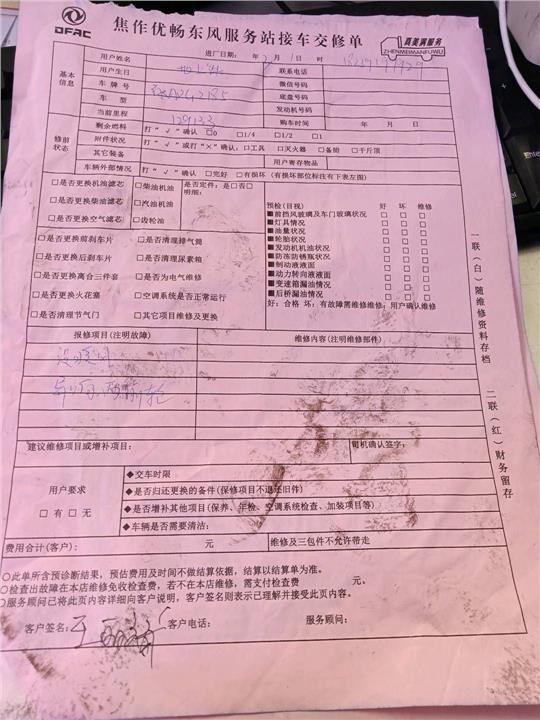 DFAC
焦作优畅东风服务站接车交修单
真美满服务
ZHENMEIMANFUWU
进厂日期: 年 2 月 1 日 时
基本信息
用户姓名 联系电话
用户生日 微信号码
车 牌 号 底盘号码
车 型 发动机号码
当前里程 129133 购车时间 年 月 日
修前状态
剩余燃料 打“√”确认 □0 □1/4 □1/2 □1
附件状况 打“√”或打“×”确认:□工具 □灭火器 □备胎 □千斤顶
其它装备 用户寄存物品
车辆外部情况 打“√”确认 □完好 □有损坏(有损坏部位标注有下表左图)
□是否更换机油滤芯 □柴油机油 是否定件:是□否□
明细:
□是否更换柴油滤芯 □汽油机油
□是否更换空气滤芯 □齿轮油
□是否更换前刹车片 □是否清理排气筒
□是否更换后刹车片 □是否清理尿素箱
□是否更换离合三件套 □是否为电气维修
□是否更换火花塞 □空调系统是否正常运行
□是否清理节气门 □其它项目维修及更换
预检(目视) 好 坏 维修
■前挡风玻璃及车门玻璃状况 □ □ □
■灯具情况 □ □ □
■油量状况 □ □ □
■轮胎状况 □ □ □
■发动机机油状况 □ □ □
■防冻防锈瓶状况 □ □ □
■制动液液面 □ □ □
■动力转向液液面 □ □ □
■变速箱漏油情况 □ □ □
■后桥漏油情况 □ □ □
好:合格 坏:有故障需维修维修:用户确认维修
报修项目(注明故障) 维修内容(注明维修部件)
没暖风
建议维修项目或增补项目: 司机确认签字:
用户要求
□ 有 □ 无
◆交车时限
◆是否归还更换的备件(保修项目不退还旧件)
◆是否增补其他项目(保养、年检、空调系统检查、加装项目等)
◆车辆是否需要清沽:
费用合计(客户): 元 维修及三包件不允许带走
○此单所含预诊断结果,预估费用及时间不做结算依据,结算以结算单为准。
○检查出故障在本店维修免收检查费,若不在本店维修,需支付检查费 元。
○服务顾问已将此页内容详细向客户说明,客户签名则表示已理解并接受此页内容。
客户签名: 客户电话: 服务顾问:
一联(白)随维修资料存档
二联(红)财务留存